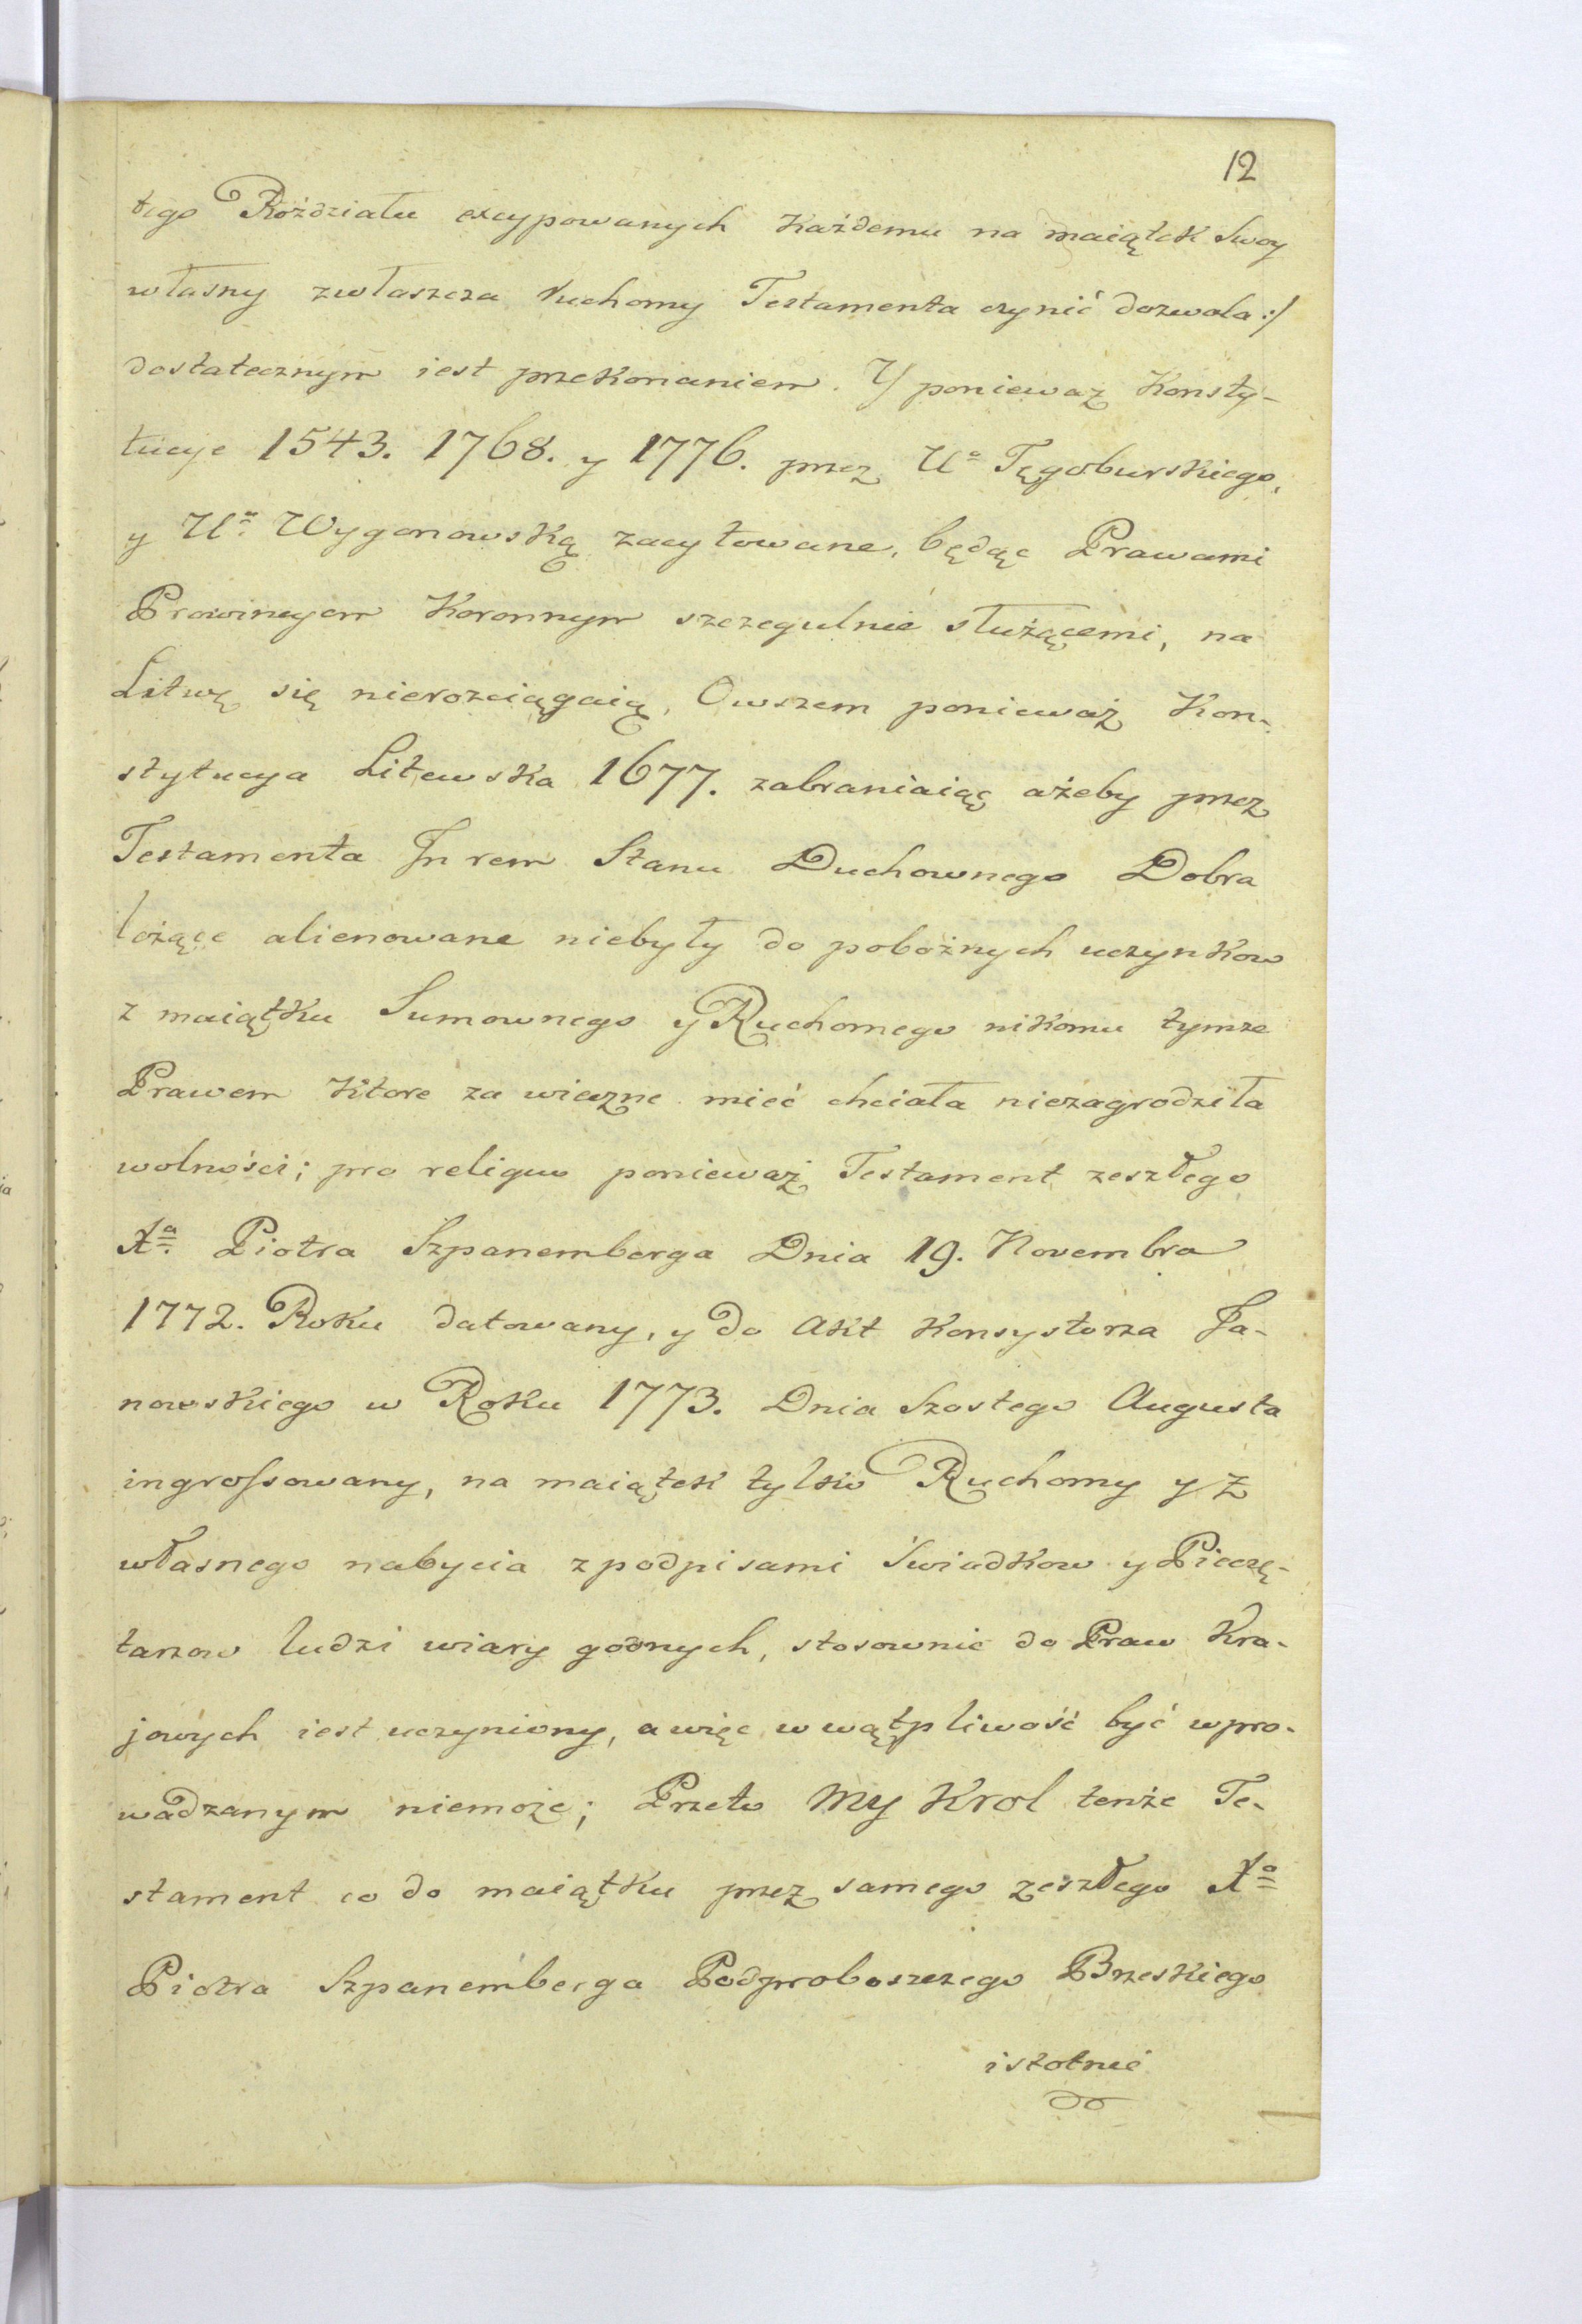 12
tego Rożdziału excypowanych każdemu na maiątek Swoy
własny zwłaszcza ruchomy Testamenta czynić dozwala :/
dostatecznym iest przekonaniem. Y ponieważ Konsty-
tucye 1543. 1768. y 1776. przez Uo Tęgoburskiego,
y Uą Wygonowską zacytowane, będąc Prawami
Prowincyom Koronnym szczegulnie służącemi, na
Litwę się nierozciągaią, Owszem ponieważ Kon-
stytucya Litewska 1677. zabraniaiąc ażeby przez
Testamenta In rem Stanu Duchownego Dobra
leżące alienowane niebyły do pobożnych uczynkow
z maiątku Summownego y Ruchomego nikomu tymże
Prawem ktore za wieczne mieć chciała niezagrodziła
wolności; pro reliquo ponieważ Testament zeszłego
Xa. Piotra Szpanemberga Dnia 19. Novembra
1772. Roku datowany, y do Akt Konsystorza Ja-
nowskiego w Roku 1773. Dnia Szostego Augusta
ingrossowany, na maiątek tylko Ruchomy y z
własnego nabycia z podpisami Swiadkow y Pieczę-
tarzow ludzi wiary godnych, stosownie do Praw Kra-
jowych iest uczyniony, a więc w wątpliwość być wpro-
wadzanym niemoże; Przeto My Krol tenże Te-
stament co do maiątku przez samego zeszłego Xa
Piotra Szpanemberga Podproboszczego Brzeskiego
istotnie